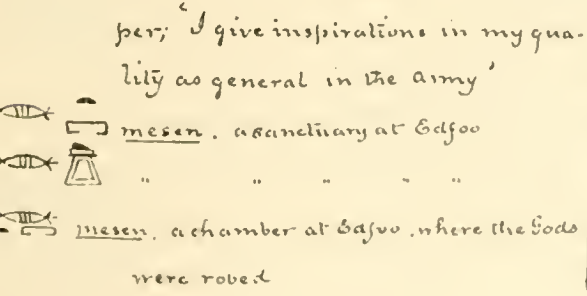 per; 'I give inspirations in my qua-
lity as general in the army'
mesen. a sanctuary at Edfoo
" " " " "
mesen. a chamber at Edfoo, where the Gods
were robed